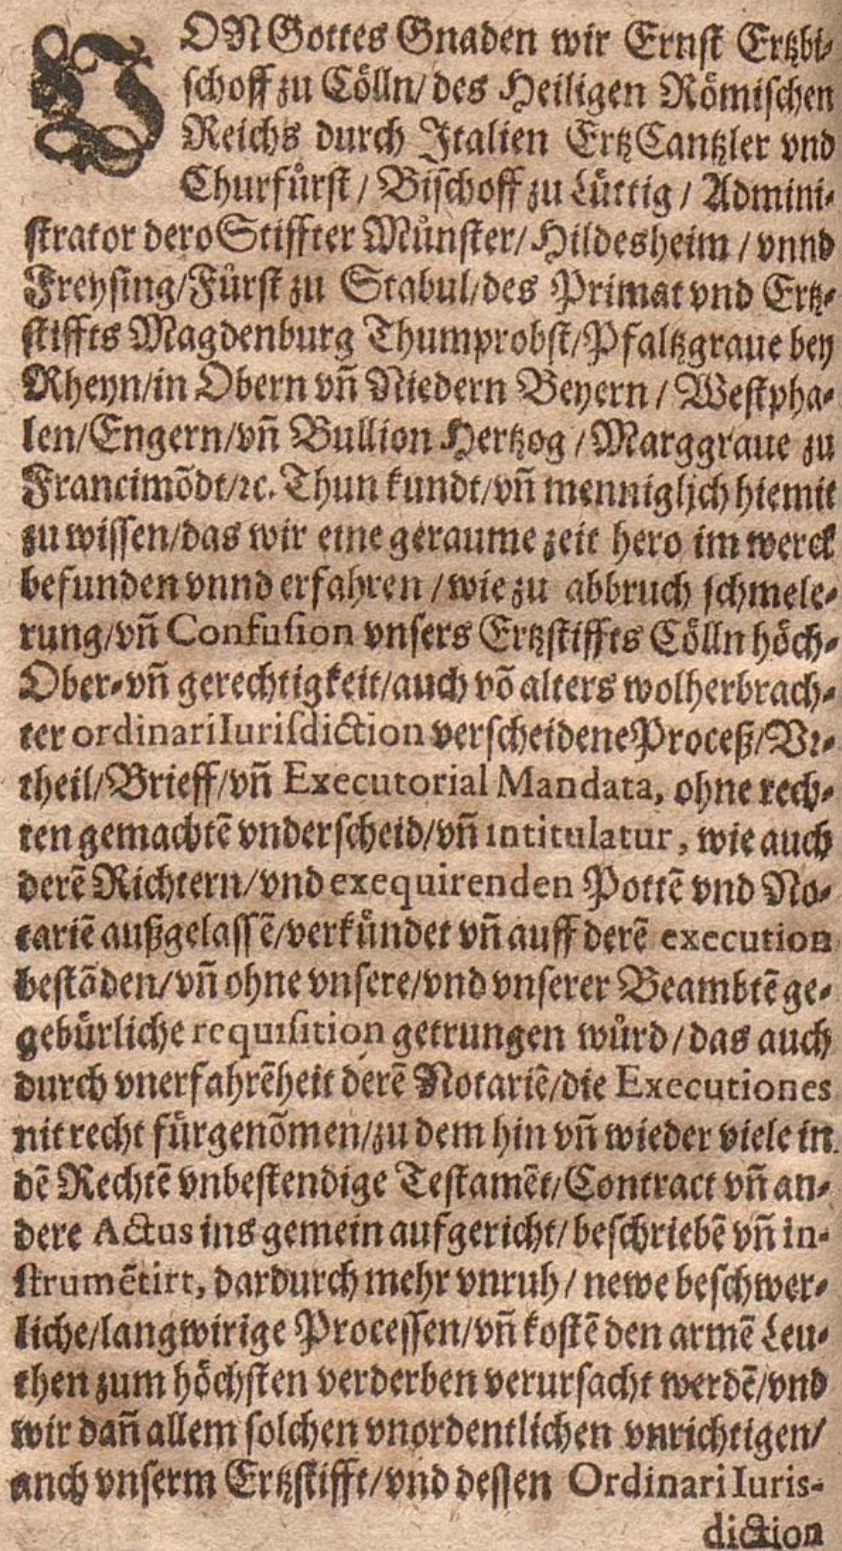 VON Gottes Gnaden wir Ernst Ertzbi-
schoff zu Cölln/ des Heiligen Römischen
Reichs durch Italien ErtzCantzler vnd
Churfürst / Bischoff zu Lüttig / Admini-
strator dero Stiffter Münster/ Hildesheim / vnnd
Freysing/Fürst zu Stabul/des Primat vnd Ertz-
stiffts Magdenburg Thumprobst/Pfaltzgraue bey
Rheyn/in Obern vñ Niedern Beyern / Westpha-
len/Engern/vñ Bullion Hertzog / Marggraue zu
Francimõdt/ꝛc. Thun kundt/vñ menniglich hiemit
zu wissen/das wir eine geraume zeit hero im werck
befunden vnnd erfahren /wie zu abbruch schmele-
rung/vñ Confusion vnsers Ertzstiffts Cölln höch-
Ober-vñ gerechtigkeit/auch võ alters wolherbrach-
ter ordinari Iurisdiction verscheidene Proceß/Vr-
theil/Brieff/vñ Executorial Mandata, ohne rech-
ten gemachtẽ vnderscheid/vñ intitulatur, wie auch
derẽ Richtern/vnd exequirenden Pottẽ vnd No-
tariẽ außgelassẽ/verkündet vñ auff derẽ execution
bestãden/vñ ohne vnsere/vnd vnserer Beambtẽ ge-
gebürliche requisition getrungen würd / das auch
durch vnerfahrẽheit derẽ Notariẽ/die Executiones
nit recht fürgenõmen/zu dem hin vñ wieder viele in
dẽ Rechtẽ vnbestendige Testamẽt/Contract vñ an-
dere Actus ins gemein aufgericht/ beschriebẽ vñ in-
strumẽtirt, dardurch mehr vnruh / newe beschwer-
liche/langwirige Processen/vñ kostẽ den armẽ Leu-
then zum höchsten verderben verursacht werdẽ/vnd
wir dañ allem solchen vnordentlichen vnrichtigen/
auch vnserm Ertzstifft/vnd dessen Ordinari Iuris-
diction